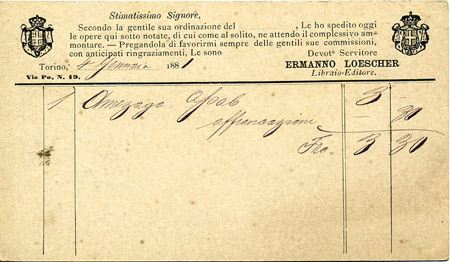 Stimatissimo Signore,
Secondo la gentile sua ordinazione del , Le ho spedito oggi
le opere qui sotto notate, di cui come al solito, ne attendo il complessivo am-
montare. — Pregandola di favorirmi sempre delle gentili sue commissioni,
con anticipati ringraziamenti, Le sono Devot° Servitore
Torino, 4 Gennaio 1881 ERMANNO LOESCHER
Via Po, N. 19. Libraio-Editore.
1 Amezaga 3
affrancazione — 30
Frc. 3 30